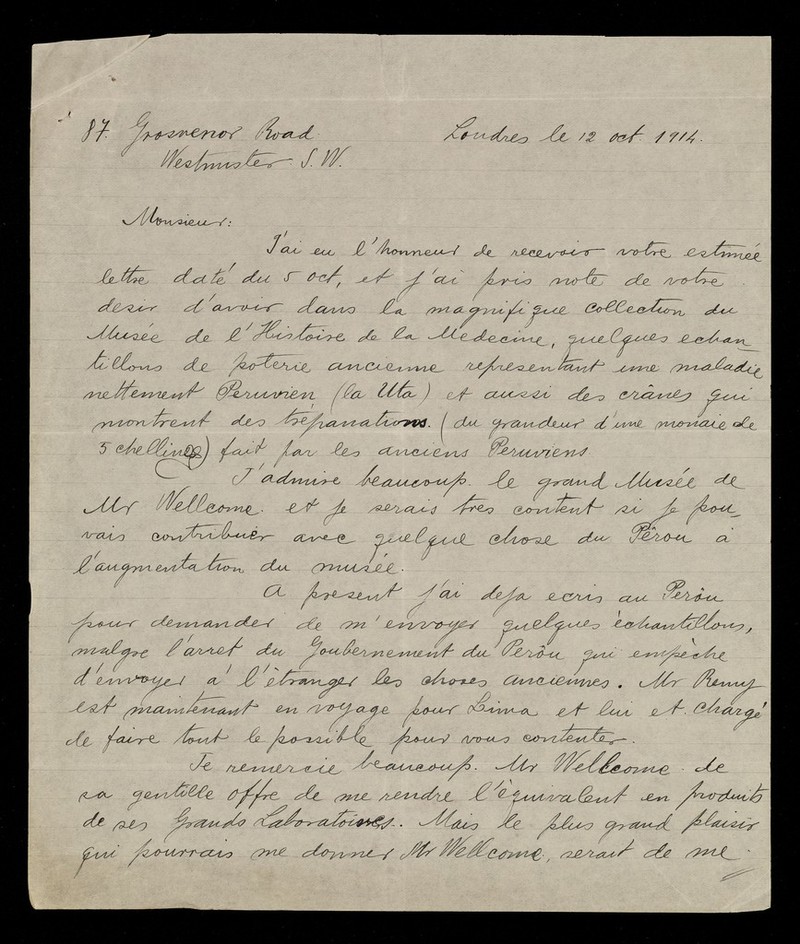 87. Grosvenor Road
Londres le 12 oct. 1914.
Westmister S. W.
Monsieur:
J'ai eu l'honneur de recevoir votre estimée
lettre daté du 5 oct, et j'ai pris note de votre
desir d'avoir dans la magnifique collection du
Musée de l'Histoire de la Medecine, quelques echan-
tillons de poterie ancienne representant une maladie
nettement Peruvien (la Uta) et aussi des crânes qui
montrent des trépanations. (du grandeur d'une monaie de
5 chellines) fait par les anciens Peruviens
J'admire beaucoup. le grand Musée de
Mr Wellcome. et je serais tres content si je pou-
vais contribuer avec quelque chose du Pérou à
l'augmentation du musée.
A present j'ai deja ecris au Perôu
pour demander de m'envoyer quelques échantillons,
malgre l'arret du Goubernement du Perôu qui empèche
d'envoyer a' l'étranger les choses anciennes. Mr Remy
est maintenant en voyage pour Lima et lui et chargé
de faire tout le possible pour vous contenter.
Je remercie beaucoup. Mr Wellcome. de
sa gentille offre de me rendre l'èquivalent en produits
de ses Grands Laboratoires. Mais le plus grand plaisir
qui pourrais me donner Mr Wellcome, serait de me